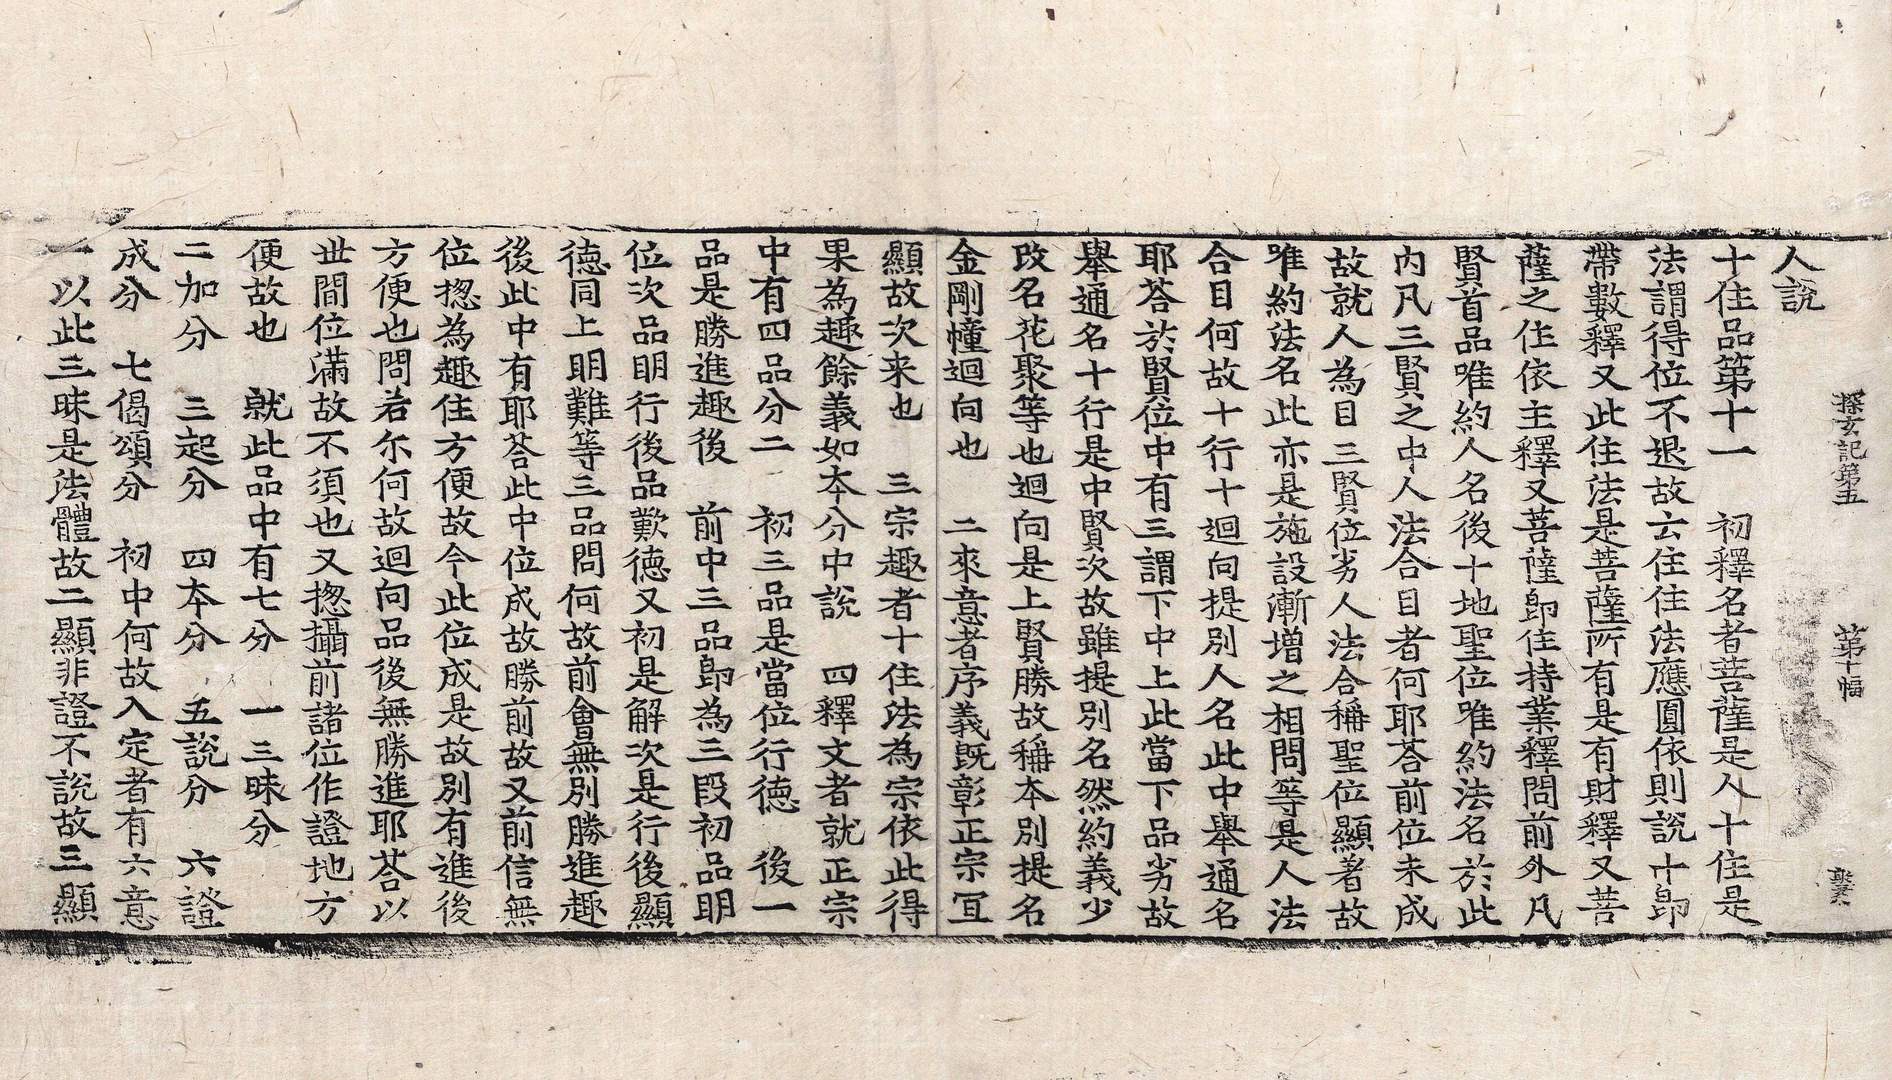 探玄記第五 第十幅
人說
十住品第十一 初釋名者菩薩是人十住是
法謂得位不退故云住住法應圓依則說十卽
帶數釋又此住法是菩薩所有是有財釋又菩
薩之住依主釋又菩薩卽住持業釋問前外凡
賢首品唯約人名後十地聖位唯約法名於此
內凡三賢之中人法合目者何耶荅前位未成
故就人為目三賢位劣人法合稱聖位顯著故
唯約法名此亦是施設漸增之相問等是人法
合目何故十行十迴向提別人名此中舉通名
耶荅於賢位中有三謂下中上此當下品劣故
舉通名十行是中賢次故雖提別名然約義少
改名花聚等也迴向是上賢勝故稱本別提名
金剛幢迴向也 二來意者序義既彰正宗冝
顯故次来也 三宗趣者十住法為宗依此得
果為趣餘義如本分中說 四釋文者就正宗
中有四品分二 初三品是當位行德 後一
品是勝進趣後 前中三品卽為三段初品明
位次品明行後品歎德又初是解次是行後顯
德同上明難等三品問何故前會無別勝進趣
後此中有耶荅此中位成故勝前故又前信無
位揔為趣住方便故今此位成是故別有進後
方便也問若尒何故迴向品後無勝進耶荅以
世間位滿故不須也又揔攝前諸位作證地方
便故也 就此品中有七分 一三昧分
二加分 三起分 四本分 五說分 六證
成分 七偈頌分 初中何故入定者有六意
一以此三昧是法體故二顯非證不說故三顯